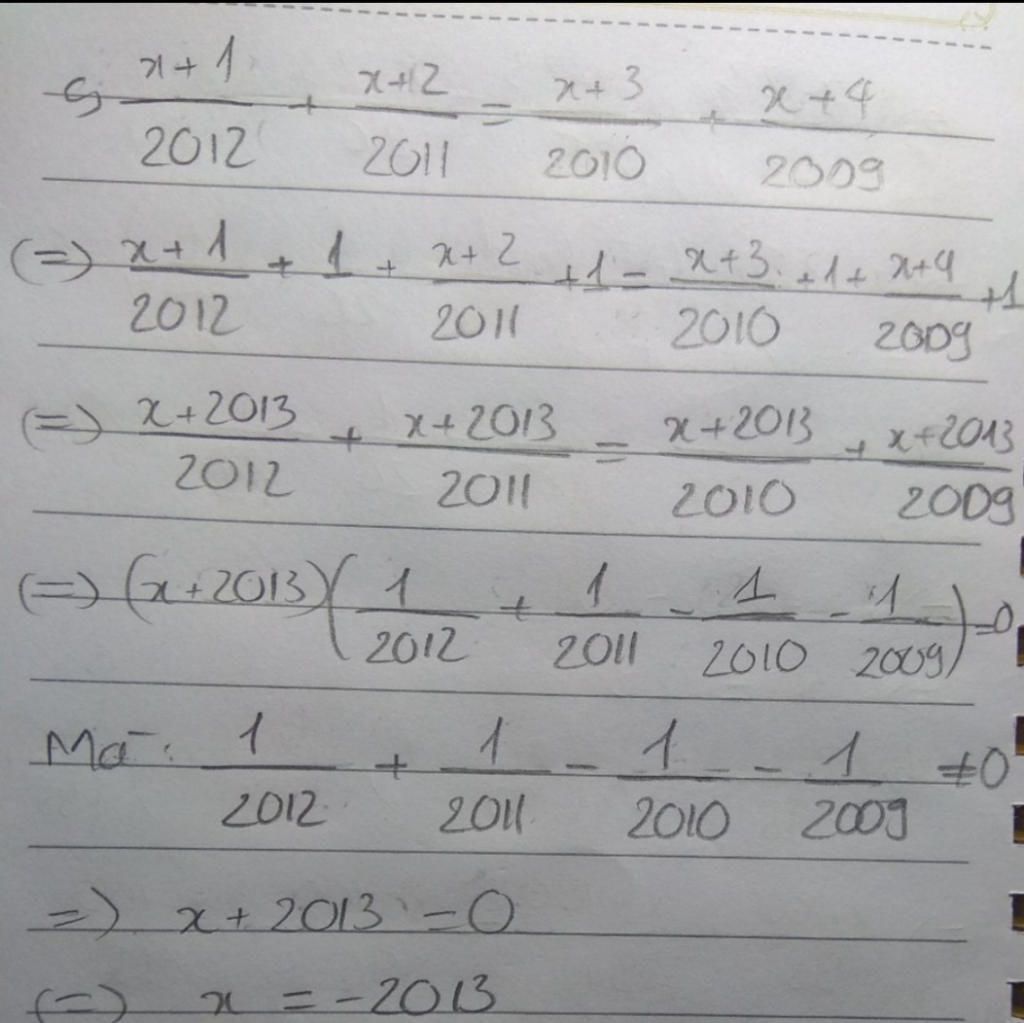 c) (x+1)/2012 + (x+2)/2011 = (x+3)/2010 + (x+4)/2009
(=) (x+1)/2012 + 1 + (x+2)/2011 + 1 = (x+3)/2010 + 1 + (x+4)/2009 + 1
(=) (x+2013)/2012 + (x+2013)/2011 = (x+2013)/2010 + (x+2013)/2009
(=) (x+2013)(1/2012 + 1/2011 - 1/2010 - 1/2009) = 0
Mà: 1/2012 + 1/2011 - 1/2010 - 1/2009 ≠ 0
=) x + 2013 = 0
(=) x = -2013